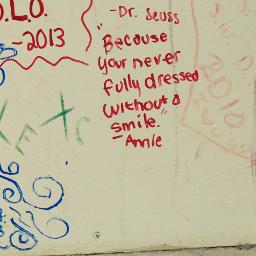 O.L.O.
~2013
-Dr. Seuss
"Because
your never
fully dressed
without a
smile."
-Annie
2010